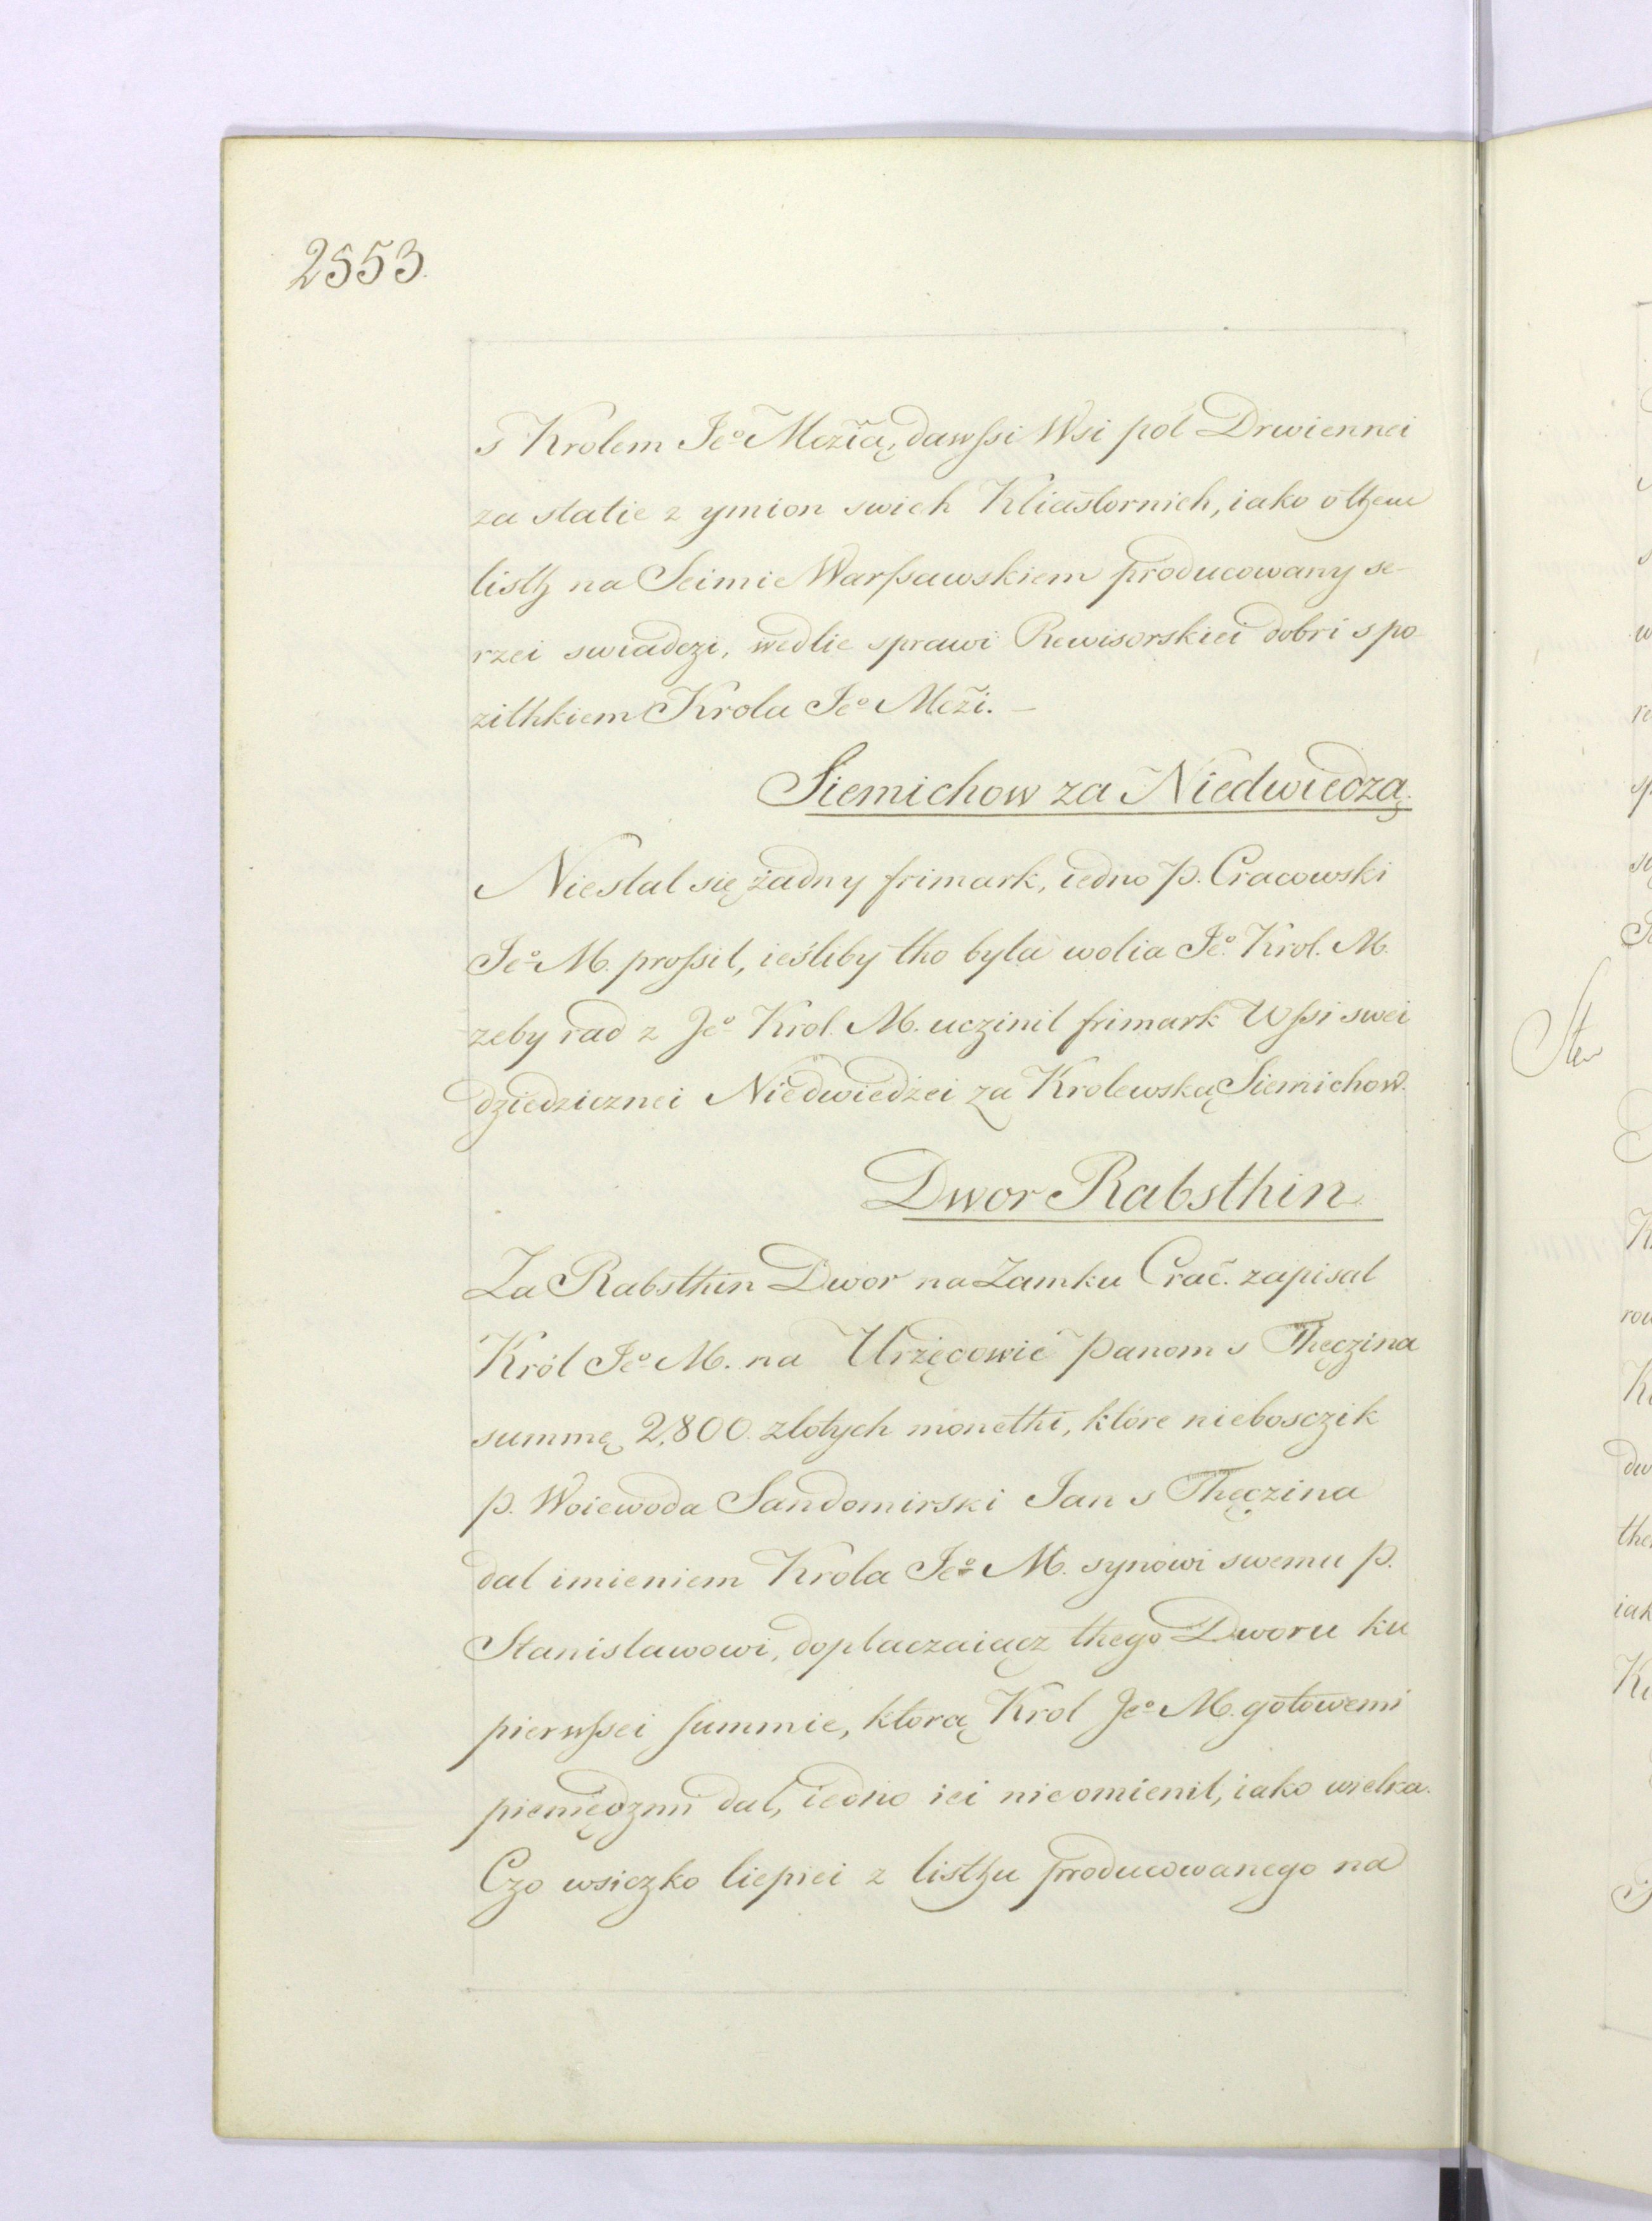 2553.
s Krolem Jeº Mczią, dawssi Wsi pol Drwiennei
za statie z ymion swich Kliastornich, iako o them
listh na Seimie Warssawskiem producowany se-
rzei swiadczi, wedlie sprawi Rewisorskiei dobri s po-
zithkiem Krola Jeº Mczi. –
Siemichow za Niedwiedzą.
Niestal się żadny frimark, iedno p. Cracowski
Jeº M. prossil, ieśliby tho była wolia Jeº Krol. M.
zeby rad z Jeº Krol. M. uczinil frimark Wssi swei
dziedzicznei Niedwiedzei za Krolewską Siemichow.
Dwor Rabsthin
Za Rabsthin Dwor na Zamku Crac. zapisal
Król Jeº M. na Urzędowie panom s Thęczina
summę 2,800 złotych monethi, które nieboszczik
p. Woiewoda Sandomirski Jan s Thęczina
dal imieniem Krola Jeº M. synowi swemu p.
Stanisławowi, doplaczaiącz thego Dworu ku
pierwssei summie, ktorą Krol Jeº M. gotowemi
pieniędzmi dal, iedno iei nieomienil, iako wielka.
Czo wsiczko liepiei z listhu producowanego na